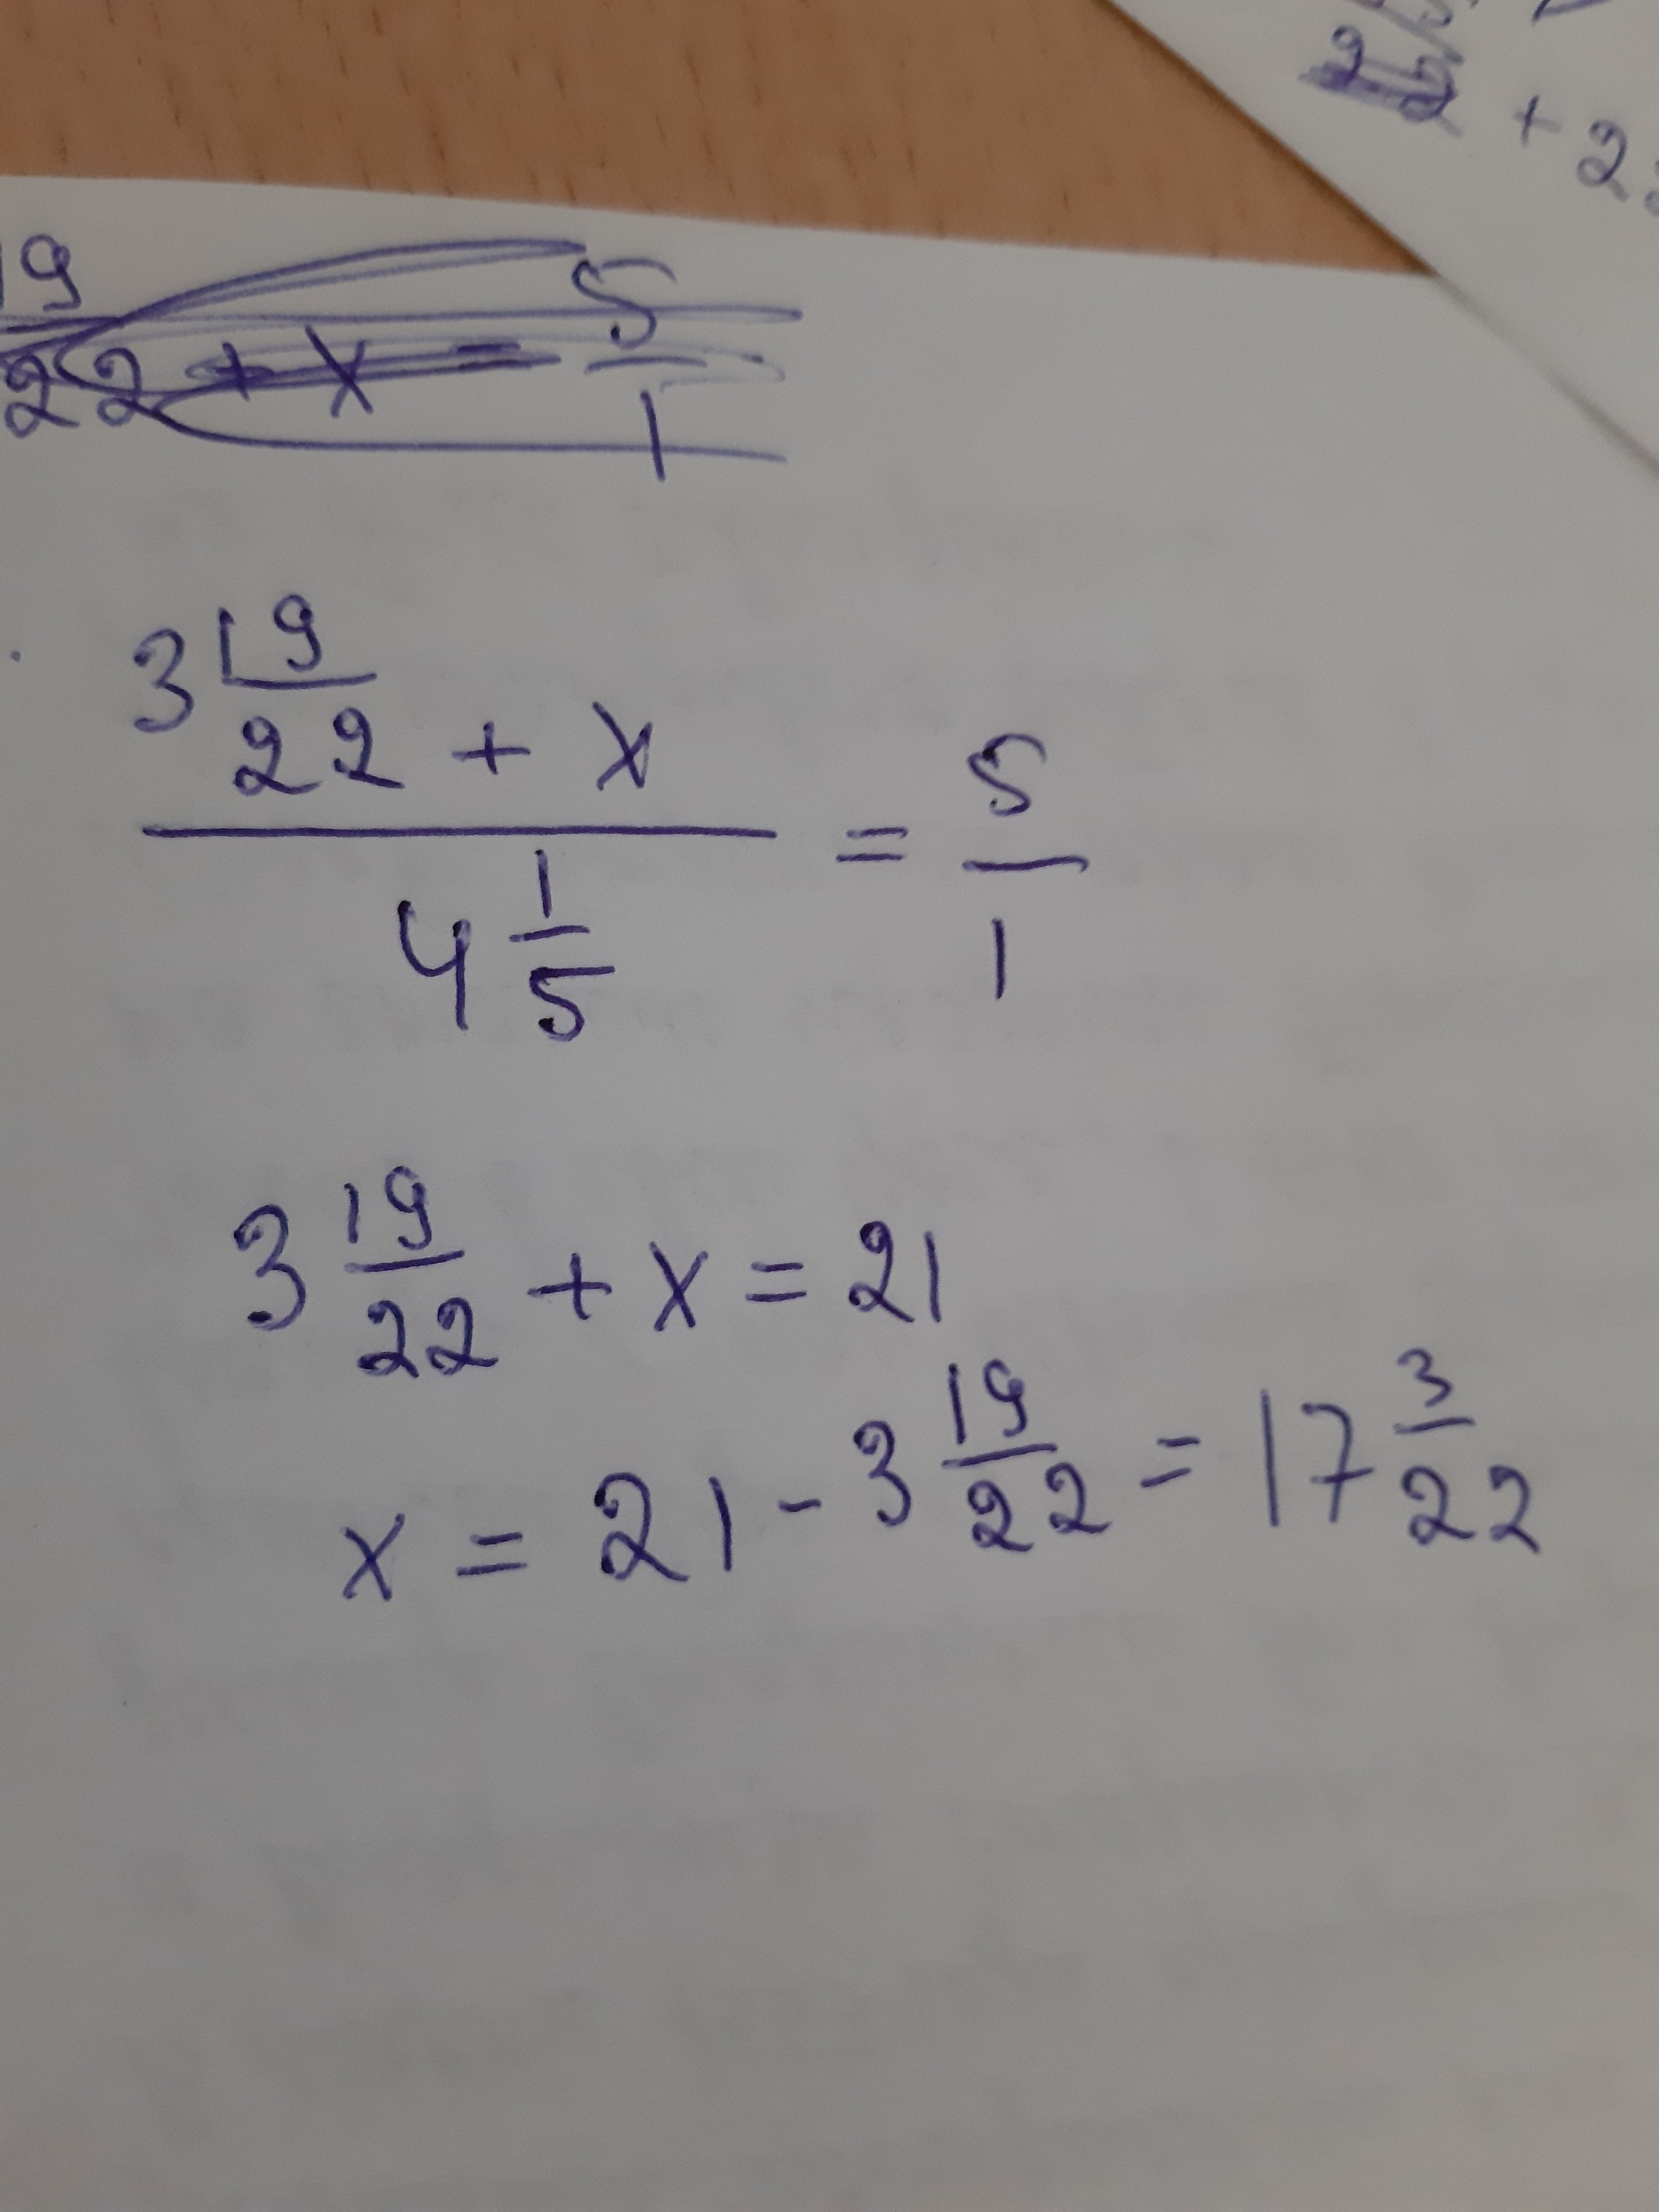 19/22 + x = 5/1
22 + 2
(3 19/22 + x) / (4 1/5) = 5/1
3 19/22 + x = 21
x = 21 - 3 19/22 = 17 3/22